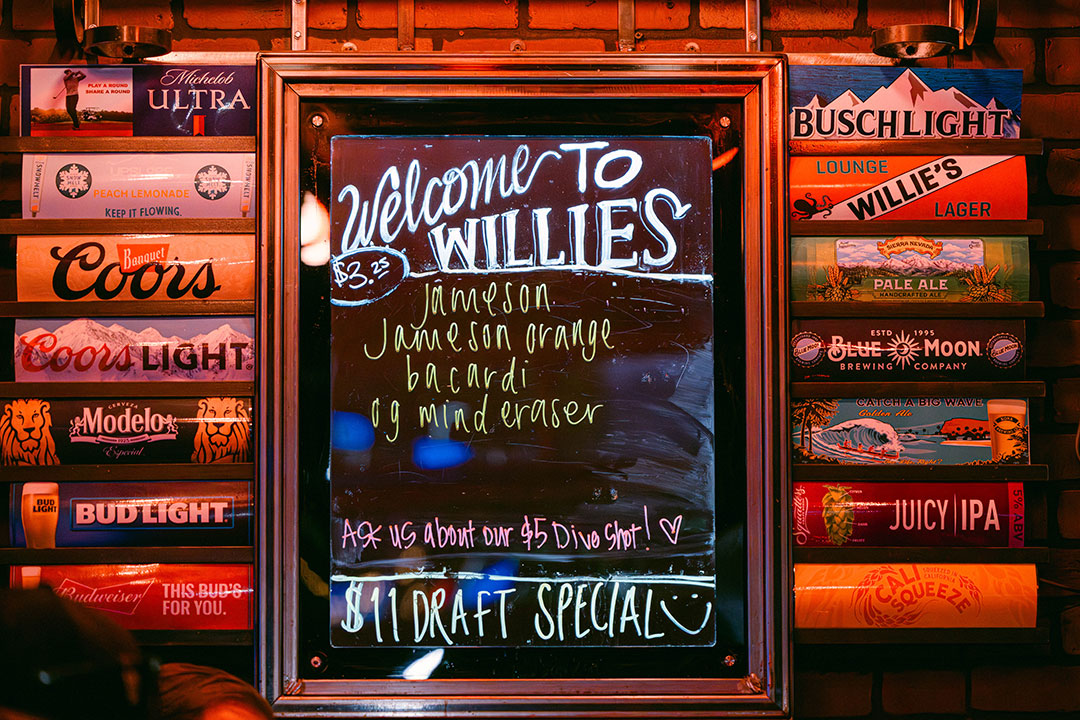 Michelob
ULTRA
PLAY A ROUND
SHARE A ROUND
SNOWMELT
PEACH LEMONADE
KEEP IT FLOWING.
Banquet
Coors
Coors LIGHT
CERVEZA
Modelo
1925
Especial
BUD
LIGHT
BUD LIGHT
Budweiser
THIS BUD'S
FOR YOU.
Welcome TO
WILLIES
$3.25
Jameson
Jameson orange
bacardi
og mind eraser
Ask us about our $5 Dive Shot! ♡
$11 DRAFT SPECIAL
BUSCH LIGHT
LOUNGE
WILLIE'S
LAGER
SIERRA NEVADA
PALE ALE
HANDCRAFTED ALE
ESTD 1995
BLUE MOON
BREWING COMPANY
CATCH A BIG WAVE
Golden Ale
JUICY IPA
5% ABV
SQUEEZED IN
CALIFORNIA
CALI
SQUEEZE